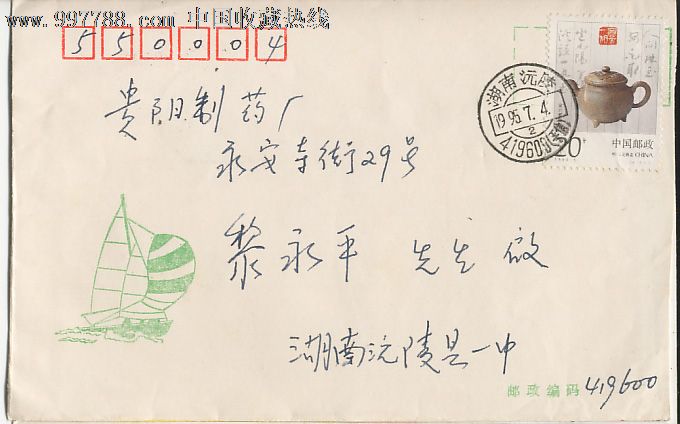 www.997788.com 中国收藏热线
550004
贵阳制药厂
永安寺街29号
黎永平 先生 启
湖南沅陵县一中
邮政编码 419600
湖南沅陵
1995.7.4.
2
419600
20分
中国邮政
CHINA